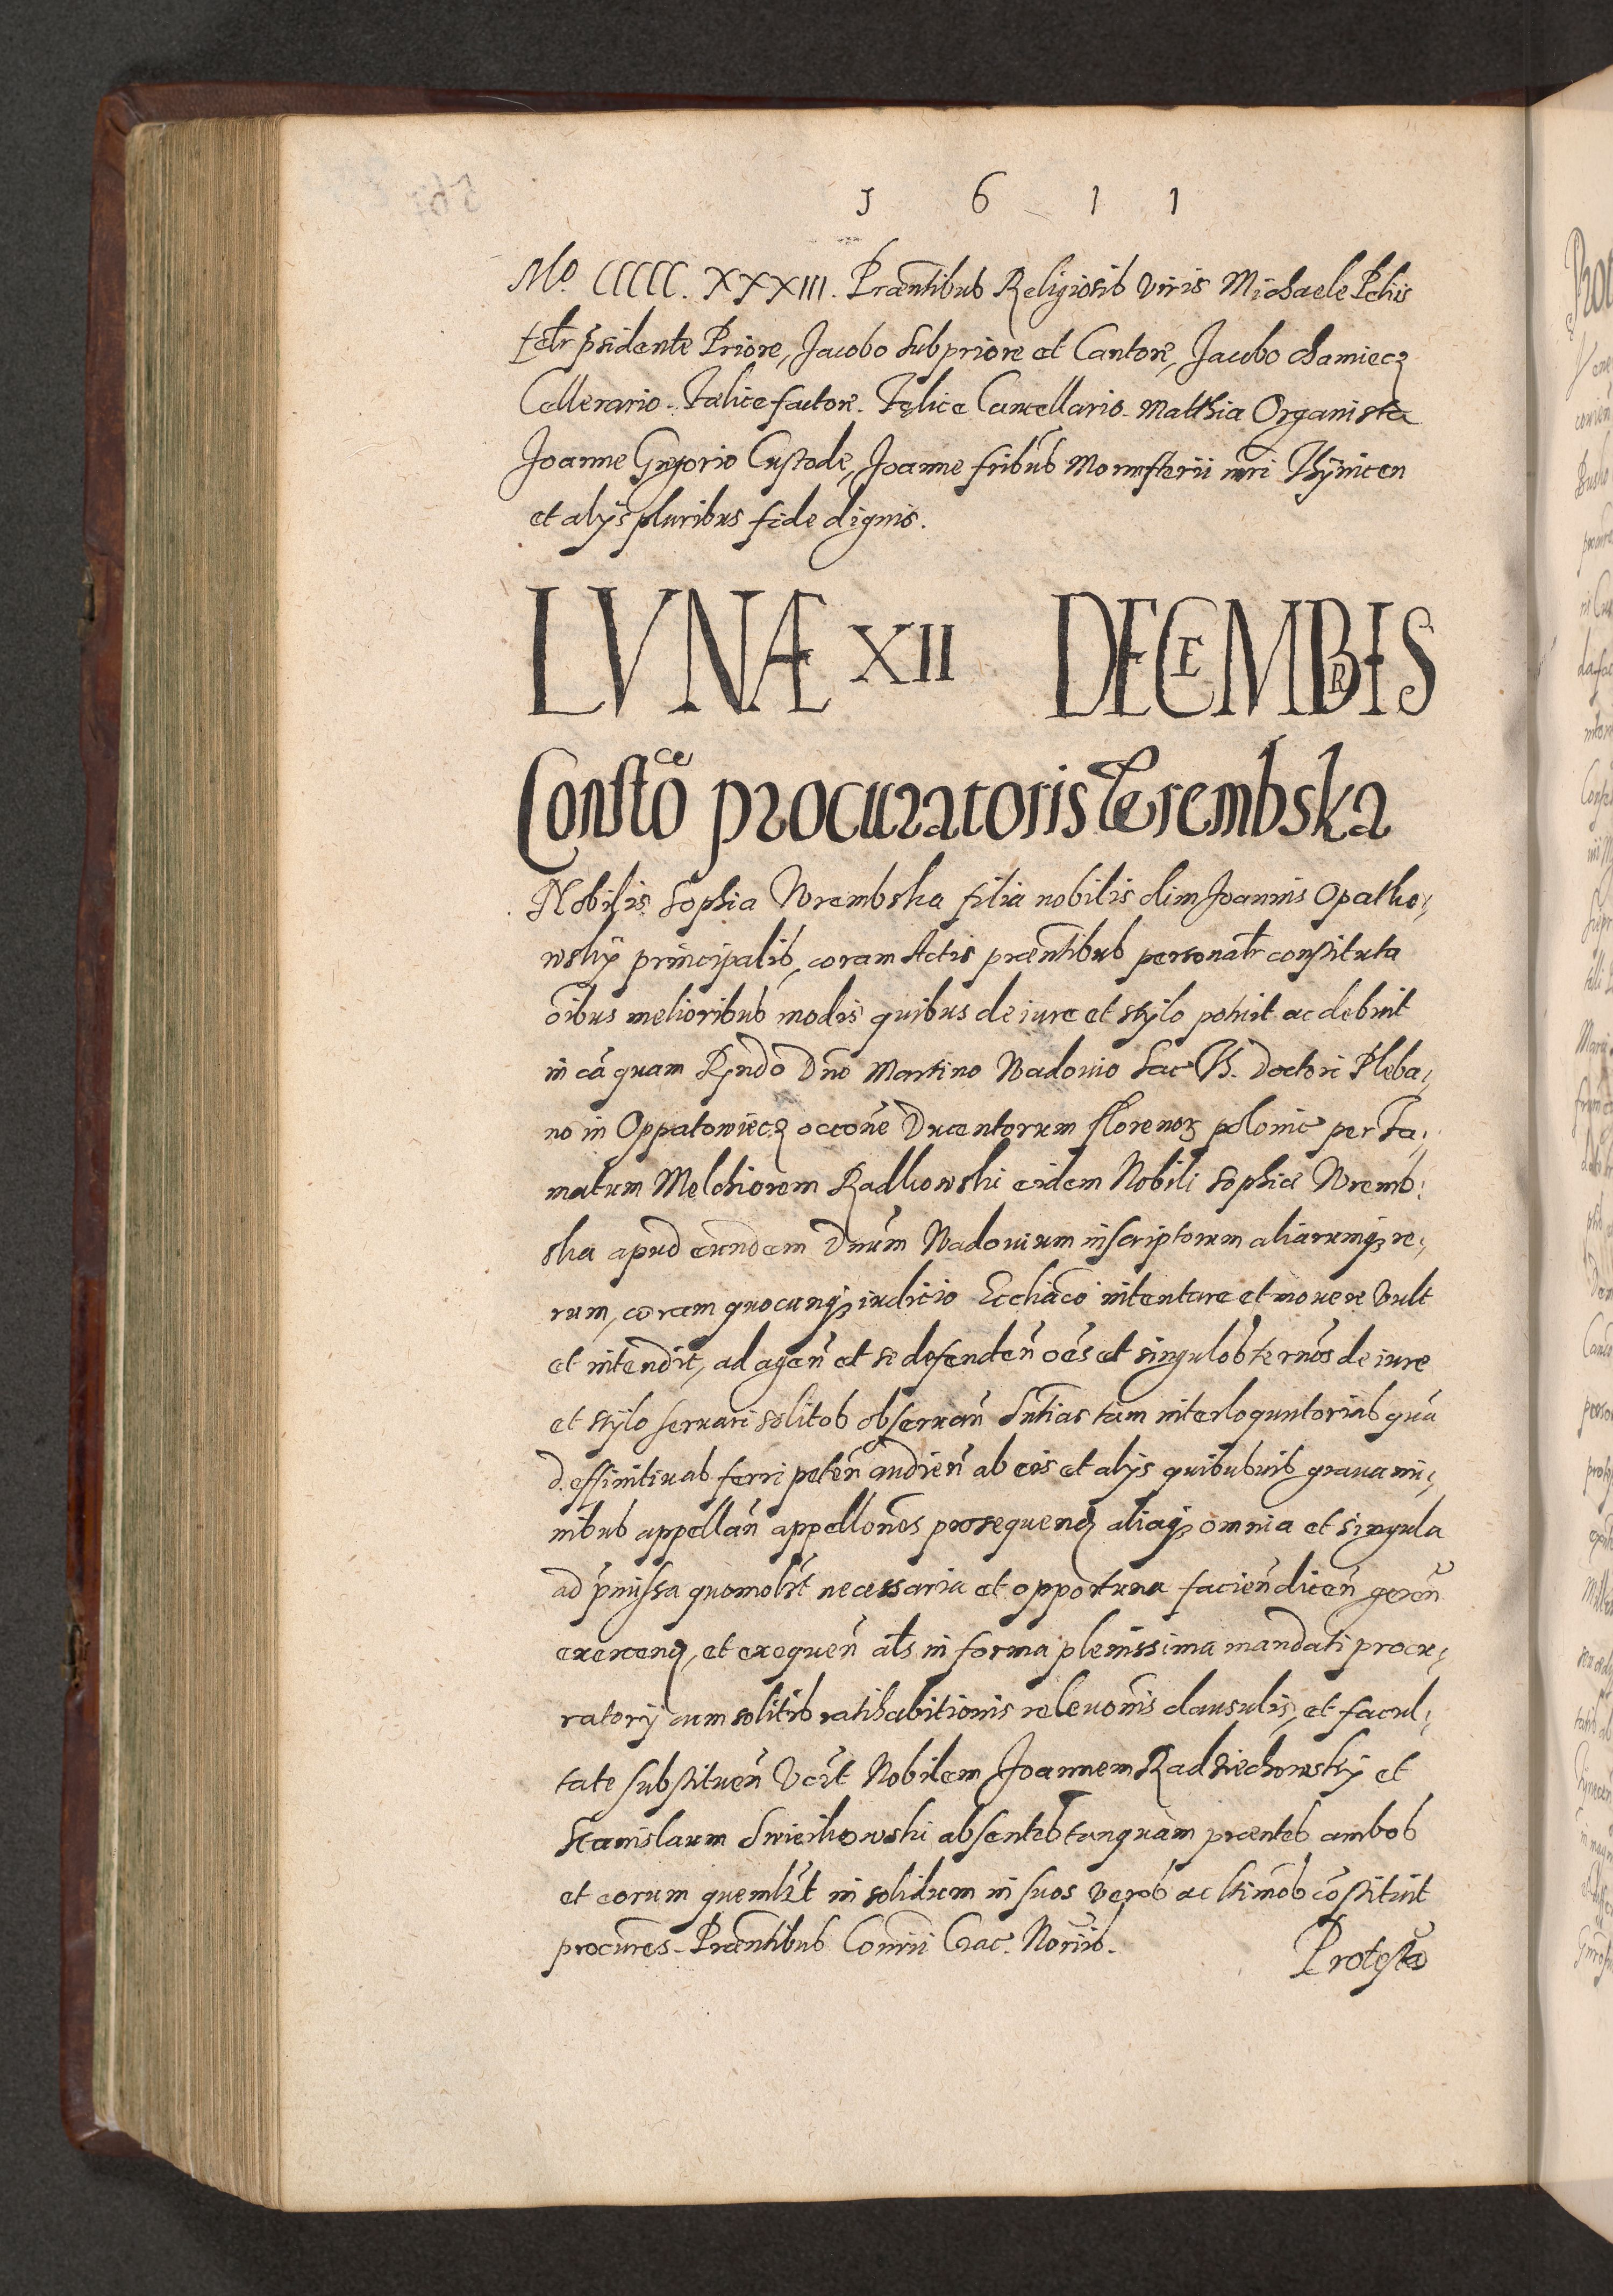 1 6 1 1
Mo. CCCCC. XXXIII. Præntibus Religiosis viris Michaele
p̄sidente Priore, Jacobo Subpriore et Cantore, Jacobo
Cellerario. Fælice factore. Felice Cancellario. Matthia Organista
Joanne Gregorio Custode, Joanne fribus Monasterii nri Thynicen
et alijs pluribus fide dignis.
LVNÆ XII DECEMBRIS
Consto͠ce procuratoris Wrembska
Nobilis Sophia Wrembska filia nobilis olim Joannis Opatko¬
wskÿ principalis, coram Actis præntibus personalr constituta
oībus melioribus modis quibus de iure et stÿlo potuit ac debuit
in cā quam Rndo Dno Martino Wadouio Sac. Th. Doctori Pleba¬
no in Oppatowiecz occōne Ducentorum florenoꝝ polonic per Fa¬
matum Melchiorem Radkowski eidem Nobili Sophiæ Wremb¬
ska apud eundem Dnum Wadouium inscriptorum aliarumqꝫ re¬
rum, coram quocunqꝫ iudicio Eccliāco intentare et mouere vult
et intendit, ad agen̄ et se defenden̄ oēs et singulos ternōs de iure
et stÿlo seruari solitos obseruan̄ Sntias tam interloquutorias quā
deffinitiuas ferri peten̄ audien̄ ab eis et alijs quibusuis grauami¬
nibus appellan̄ appellōnes prosequenꝝ aliaqꝫ omnia et singula
ad p̄missa quomolꝫt necessaria et opportuna facien̄ dicen̄ geren̄
exercenꝝ, et exequen̄ als in forma plenissima mandati procu¬
ratorij cum solitis ratihabitionis releuōnis clausulis, et facul¬
tate substituen̄ vcꝫt Nobilem Joannem Radziechowskÿ et
Stanislaum Swieikowski absentes tanquam præntes ambos
et eorum quemlꝫt in solidum in suos veros ac ltimos cōstituit
procūres. Præntibus Consrii Crac. Noriis.
Protesta